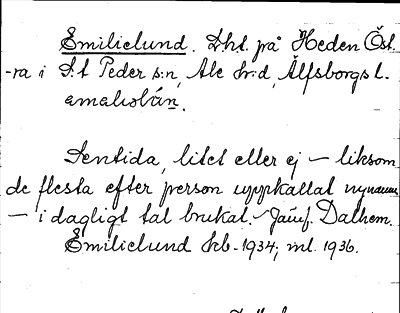 Emilielund. Lht. på Heden Öst-
-ra i S:t Peder s:n, Ale hrd, Älfsborgs l.
Sentida, litet eller ej — liksom
de flesta efter person uppkallat nynamn
— i dagligt tal brukat. Jämf. Dalhem.
Emilielund hb. 1934; ml. 1936.